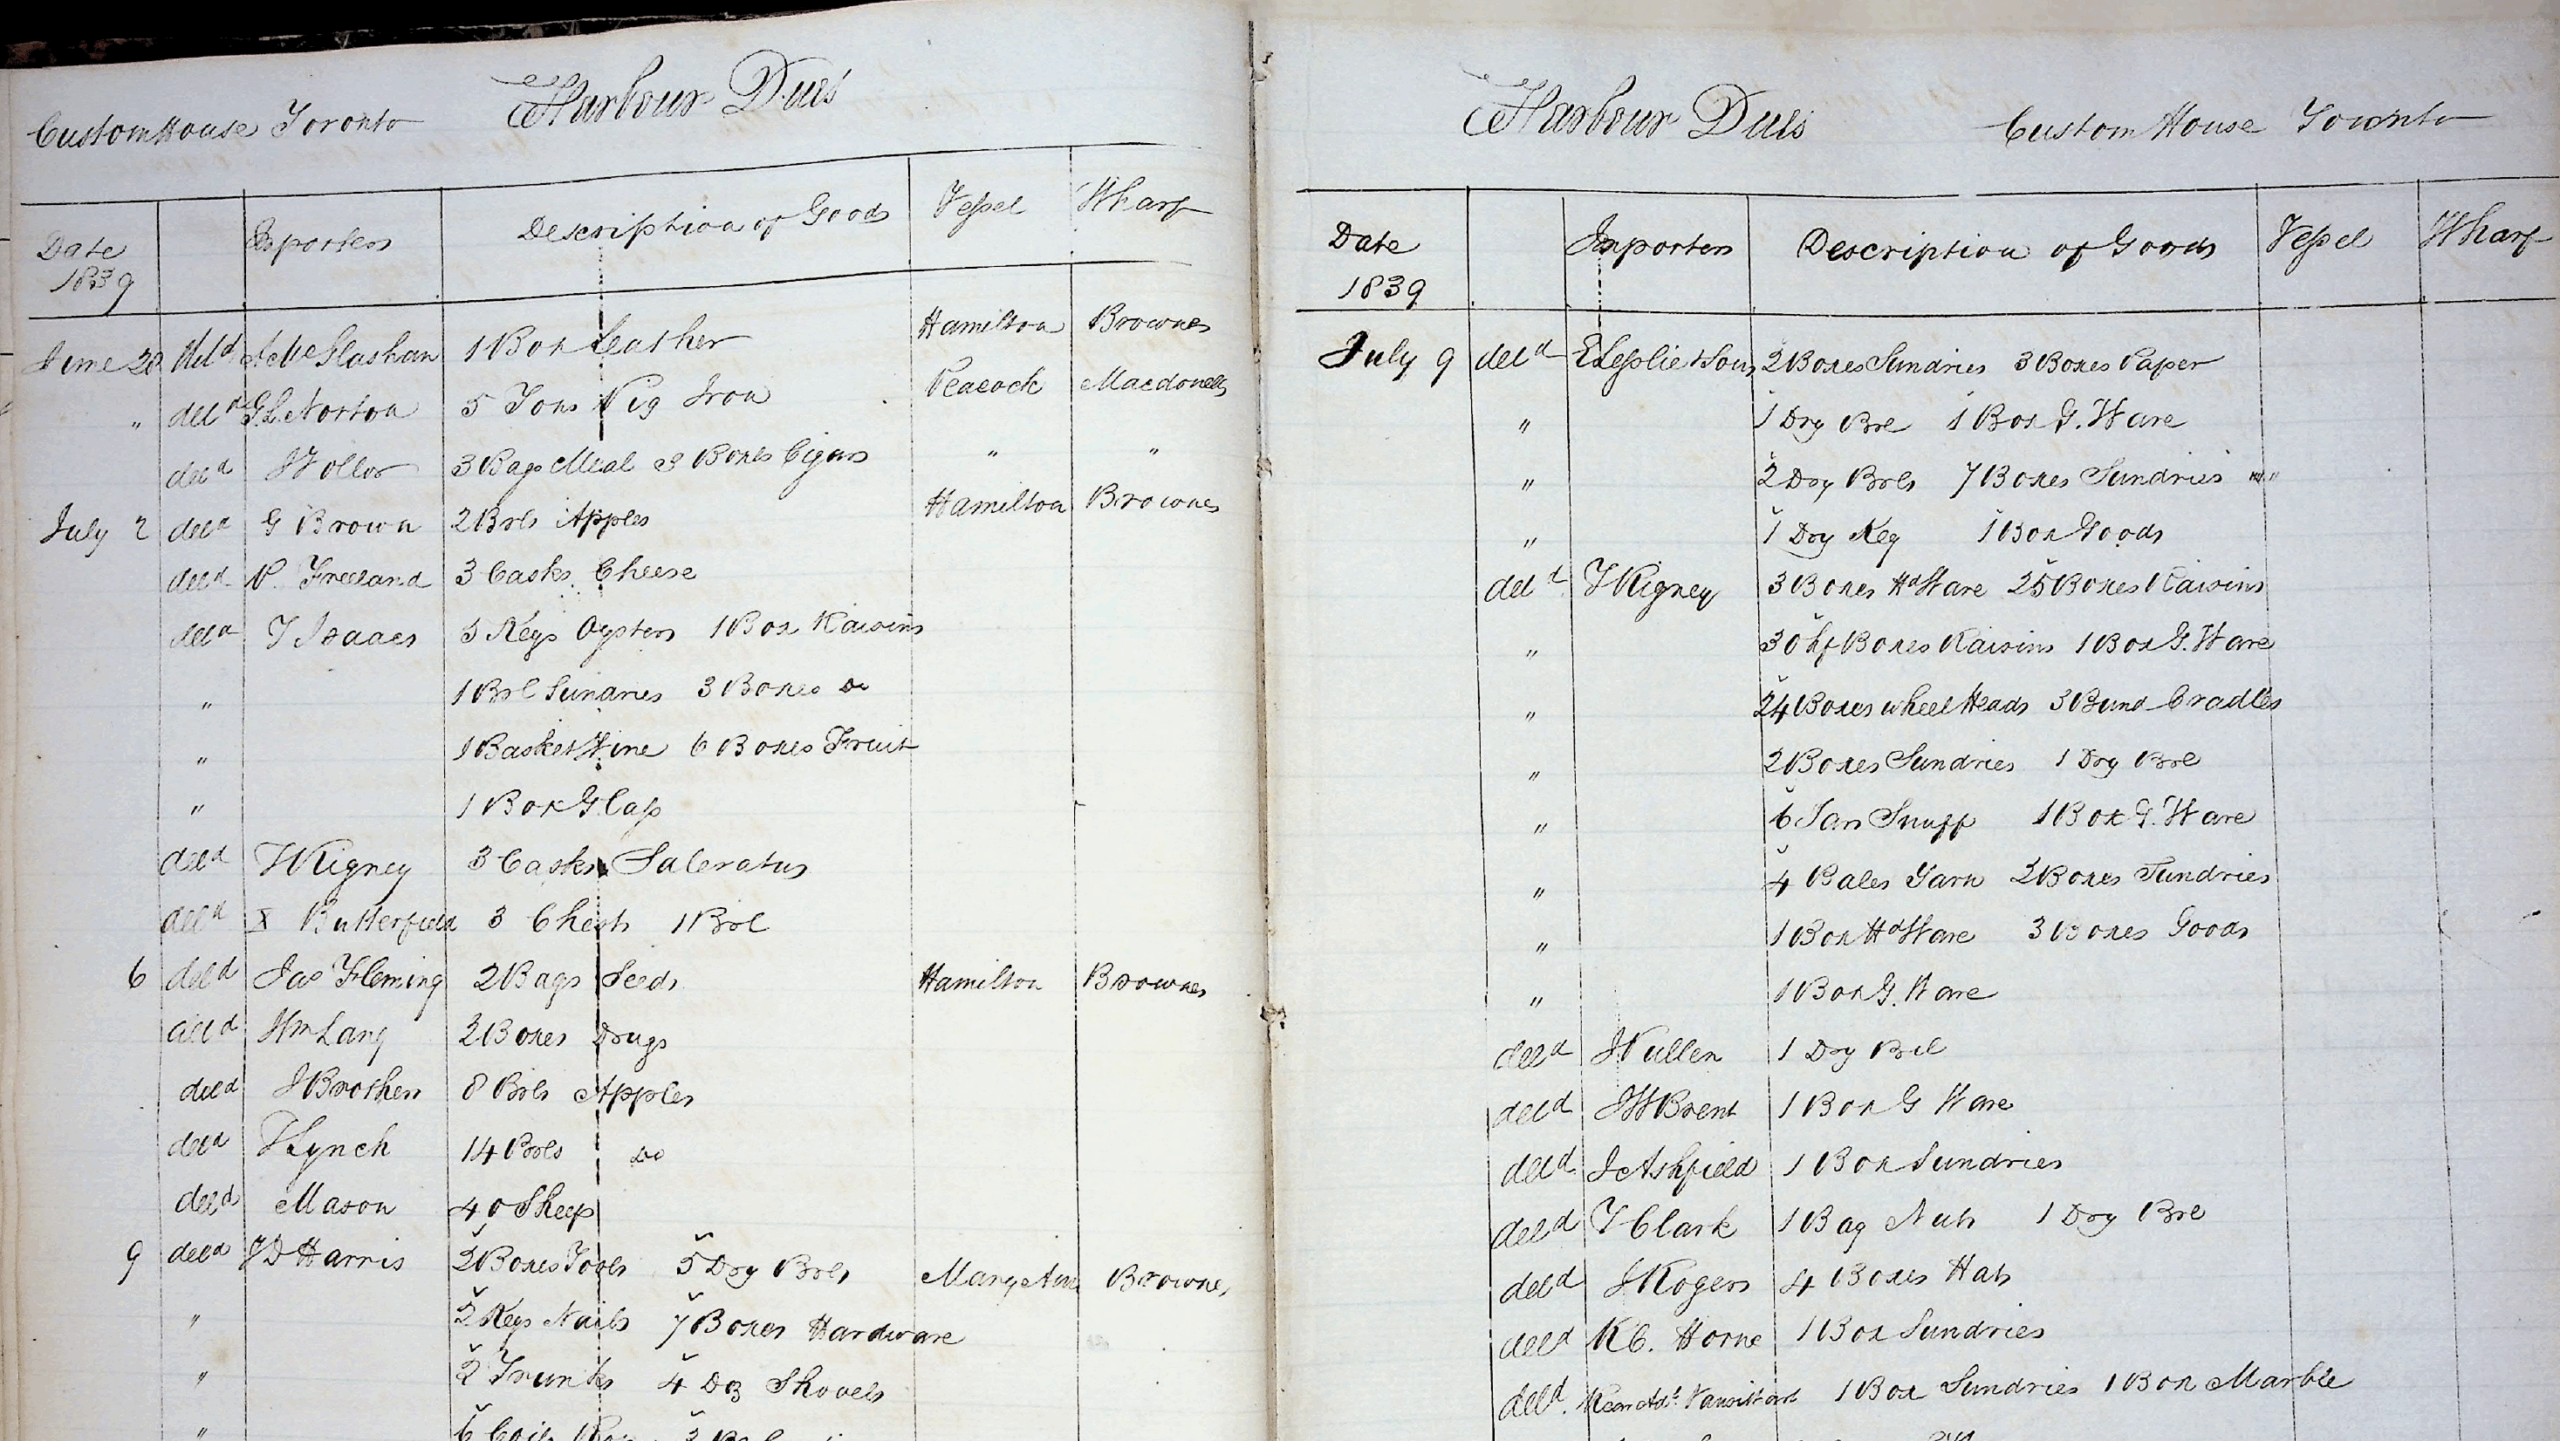 Custom House Toronto Harbour Dues
Date 1839 Importers Description of Goods Vessel Wharf
June 28 deld A McGlashan 1 Box Leather Hamilton Brownes
" deld G.L. Norton 5 Tons Pig Iron Peacock Macdonells
deld 3 Bags Meal 3 Boxes Cigars " "
July 2 deld G Brown 2 Brls Apples Hamilton Brownes
deld P. Freeland 3 Casks Cheese
deld T Isaacs 5 Kegs Oysters 1 Box Raisins
" 1 Brl Sundries 3 Boxes Do
" 1 Basket Wine 6 Boxes Fruit
" 1 Box Glass
deld T Rigney 3 Casks Saleratus
deld X Butterfield 3 Chests 1 Brl
6 deld Jas Fleming 2 Bags Seeds Hamilton Brownes
deld Wm Lang 2 Boxes Drugs
deld J Brothers 8 Brls Apples
deld Lynch 14 Brls Do
deld Mason 40 Sheep
9 deld JD Harris 2 Boxes Tools 5 Dry Brls Mary Ann Brownes
" 2 Kegs Nails 7 Boxes Hardware
" 2 Trunks 4 Dz Shovels
" 6 Coils
Harbour Dues Custom House Toronto
Date 1839 Importers Description of Goods Vessel Wharf
July 9 deld E Lesslie & Sons 2 Boxes Sundries 3 Boxes Paper
" 1 Dry Brl 1 Box G. Ware
" 2 Dry Brls 7 Boxes Sundries
" 1 Dry Keg 1 Box Goods
deld T Rigney 3 Boxes Hd Ware 25 Boxes Raisins
" 30 hf Boxes Raisins 1 Box G. Ware
" 24 Boxes wheel Heads 3 Bund Cradles
" 2 Boxes Sundries 1 Dry Brl
" 6 Jars Snuff 1 Box G. Ware
" 4 Bales Yarn 2 Boxes Sundries
" 1 Box Hd Ware 3 Boxes Goods
" 1 Box G. Ware
deld 1 Dry Brl
deld JW Brent 1 Box G Ware
deld J Ashfield 1 Box Sundries
deld T Clark 1 Bag Nuts 1 Dry Brl
deld J Rogers 4 Boxes Hats
deld R C. Horne 1 Box Sundries
deld. Rear Adl Vansittart 1 Box Sundries 1 Box Marble